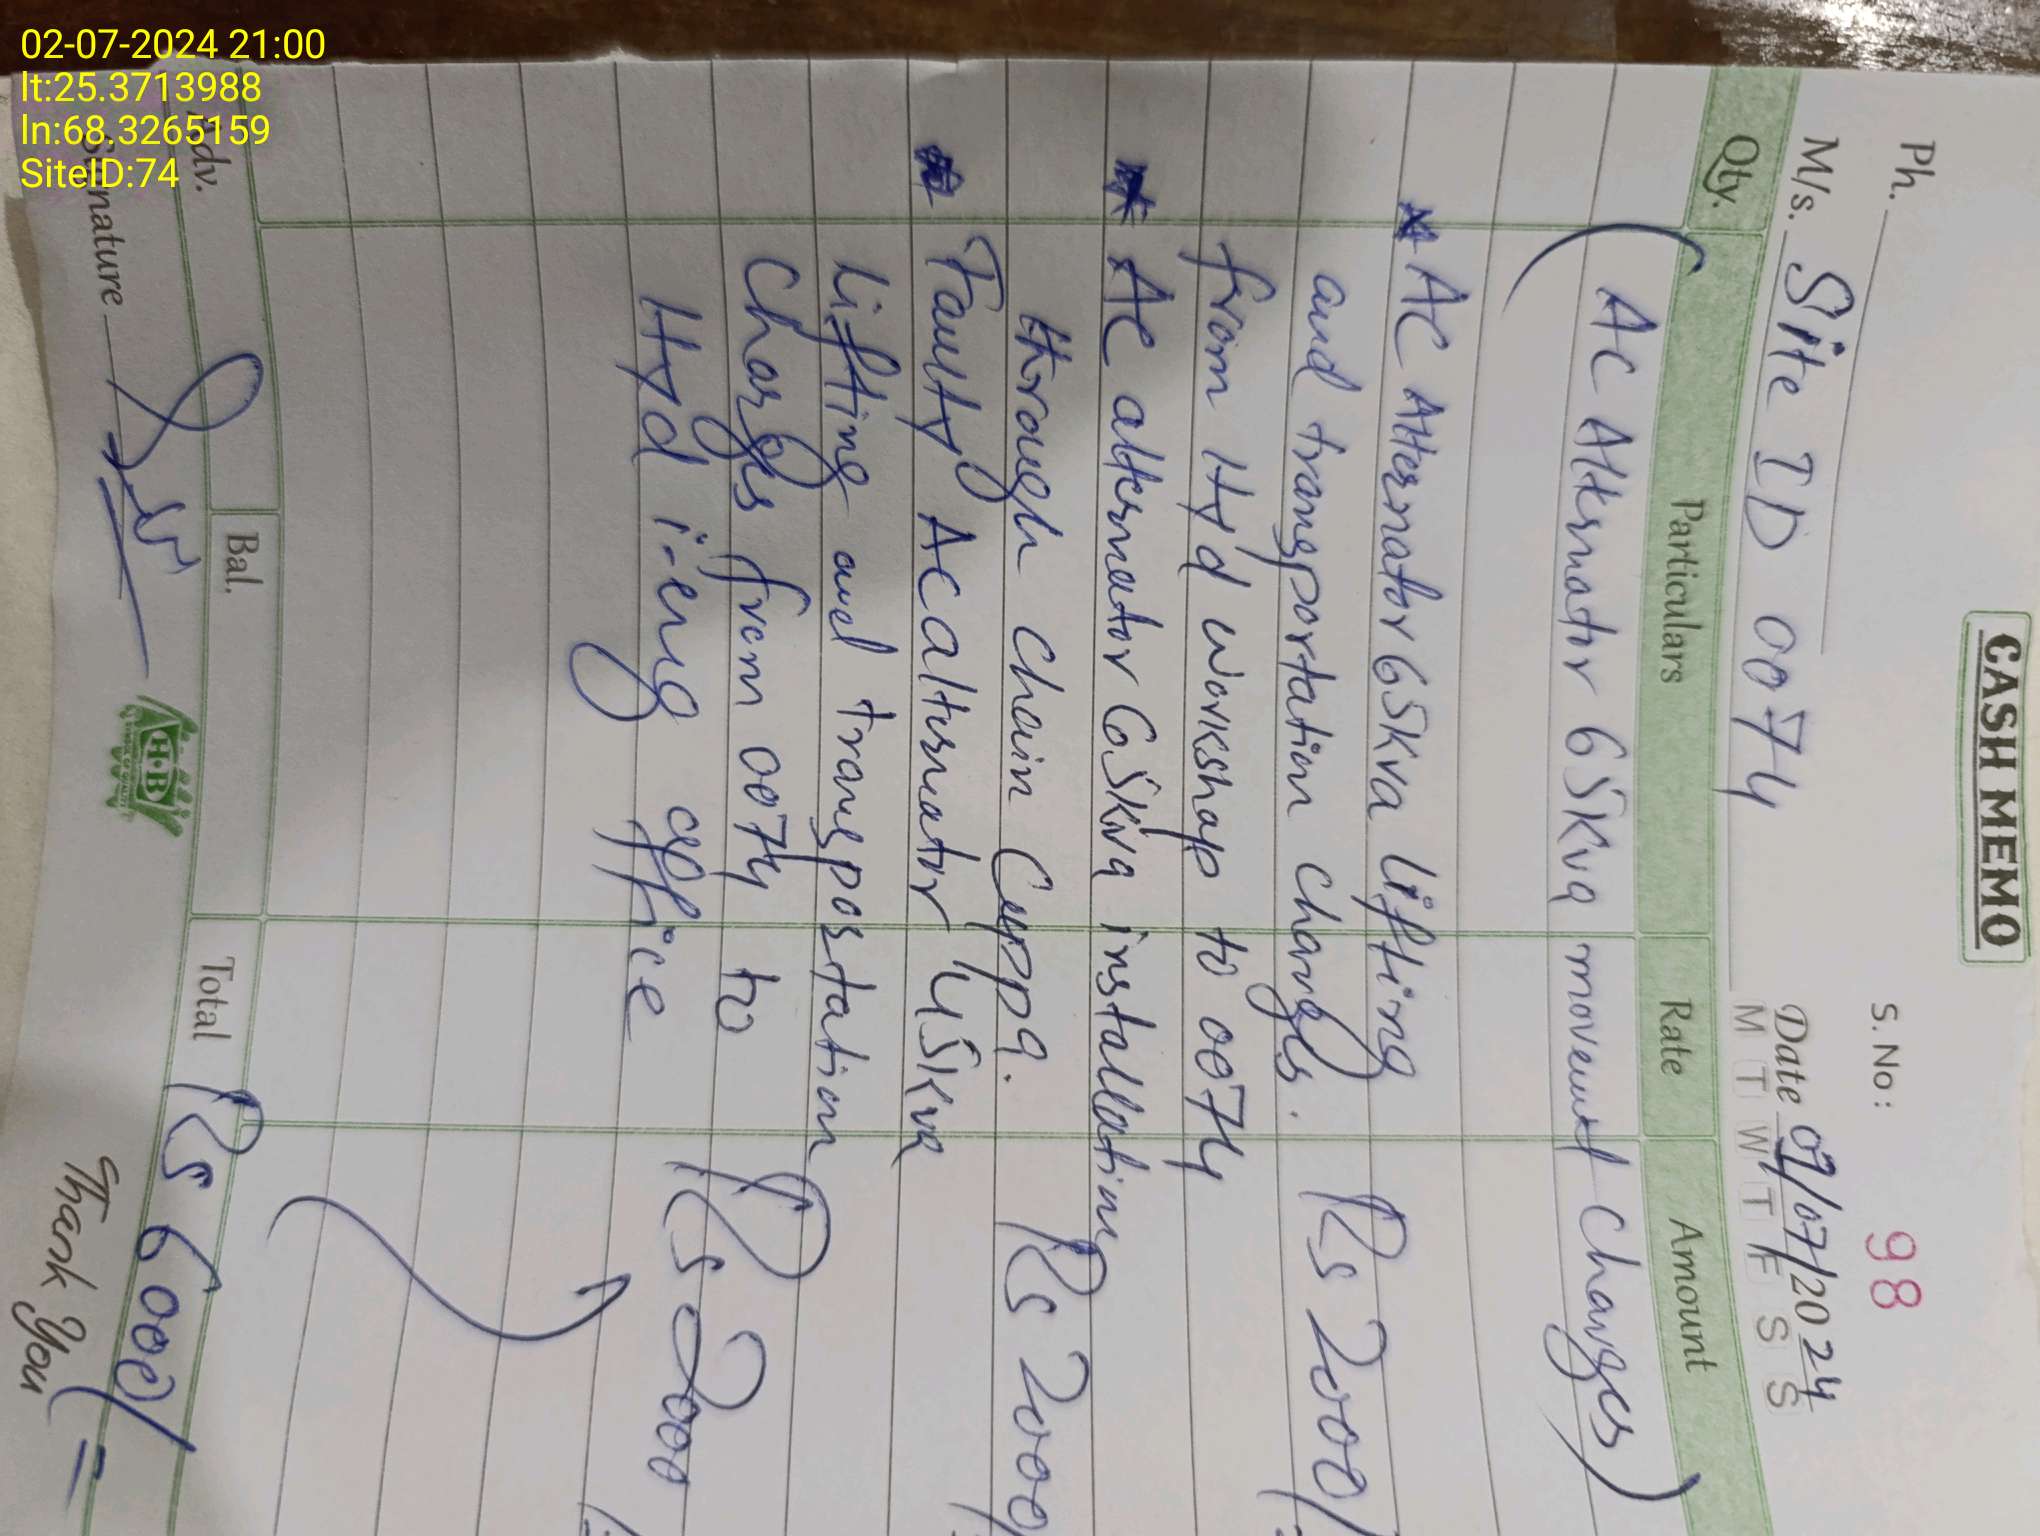 02-07-2024 21:00
lt:25.3713988
ln:68.3265159
SiteID:74
CASH MEMO
S. No: 98
Ph.
Date 02/07/2024
M/s. Site ID 0074
M T W T F S S
Qty. Particulars Rate Amount
(AC Alternator 65Kva movement Charges)
* AC Alternator 65Kva Lifting
and transportation charges. Rs 2000/=
from Hyd workshop to 0074
* AC alternator 65Kva installation
through Chain Cuppa. Rs 2000/=
* Faulty AC alternator 45Kva
Lifting and transportation
Charges from 0074 to Rs 2000/=
Hyd i-eng office
Adv. Bal. Total Rs 6000/=
Signature
H·B
Thank You